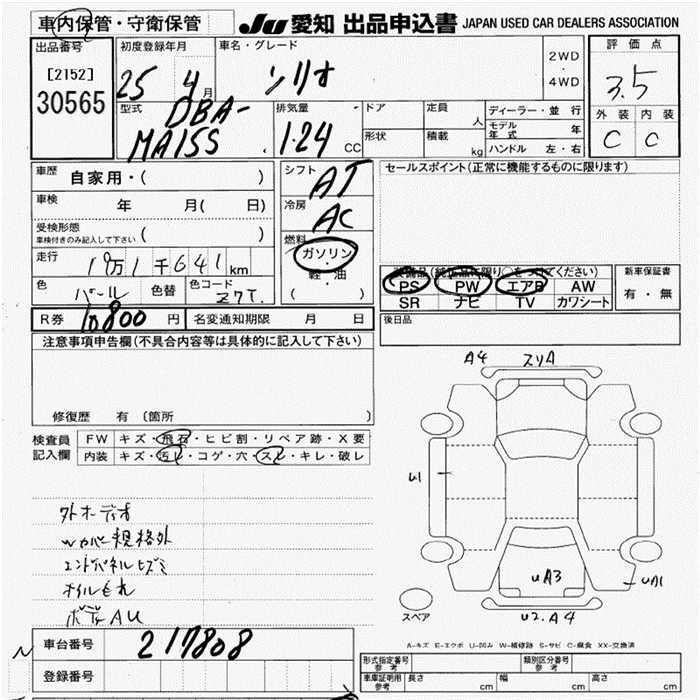 車内保管・守衛保管 JU 愛知 出品申込書 JAPAN USED CAR DEALERS ASSOCIATION
出品番号 初度登録年月 車名・グレード 2WD・4WD 評価点
[2152] 30565 25 4月 ソリオ 3.5
型式 DBA-MA15S 排気量 1.24 CC ドア 定員 人 ディーラー・並行
形状 積載 kg モデル年式 年 外装 内装
ハンドル 左・右 C C
車歴 自家用・( ) シフト AT セールスポイント(正常に機能するものに限ります)
車検 年 月( 日) 冷房 AC
受検形態 車検付きのみ記入して下さい ( ) 燃料 ガソリン・軽・油 ( )
走行 10万1千641km
装備品(純正品に限り○をつけてください) 新車保証書
色 パール 色替 色コード Z7T. PS PW エアB AW 有・無
SR ナビ TV カワシート
R券 10800円 名変通知期限 月 日 後日品
注意事項申告欄(不具合内容等は具体的に記入して下さい)
修復歴 有 (箇所 )
検査員記入欄 FW キズ・飛石・ヒビ割・リペア跡・X要
内装 キズ・汚レ・コゲ・穴・スレ・キレ・破レ
A4 スリA
U1
UA3
UA1
スペア
U2.A4
外オーディオ
Wカバー規格外
エンドパネルヒズミ
オイルもれ
ボディAU
A-キズ E-エクボ U-凹み W-補修跡 S-サビ C-腐食 XX-交換済
車台番号 217808
登録番号
形式指定番号 参考 類別区分番号 参考
車庫証明用 参考 長さ cm 幅 cm 高さ cm